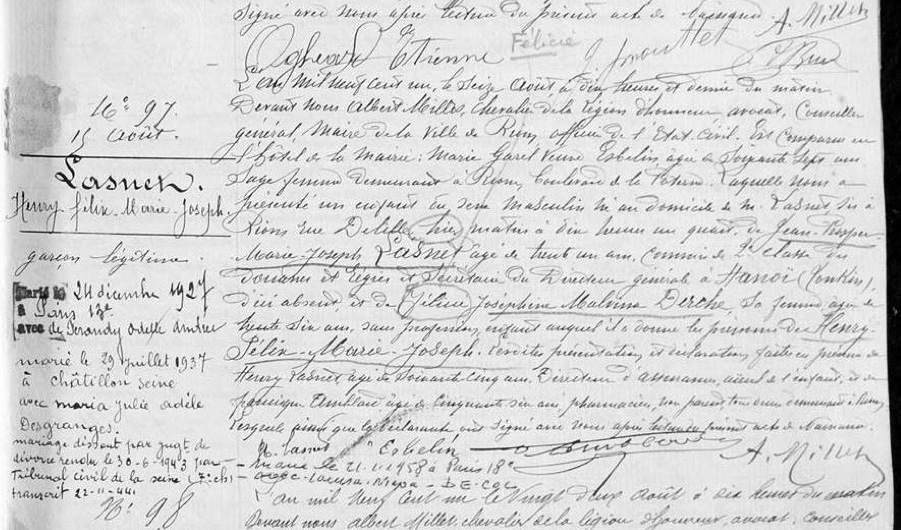 Signé avec nous après lecture du présent acte de Naissance. A. Millet
Etienne Félicie
L'an mil neuf cent un, le Seize Août, à dix heures et demie du matin
Devant nous Albert Millet, chevalier de la Légion d'honneur, avocat, Conseiller
général Maire de la Ville de Riom, officier de l'Etat-Civil. Est comparue en
l'hôtel de la Mairie: Marie Garel Veuve Esbelin âgée de Soixante Sept ans
Sage femme demeurant à Riom, Boulevard de la Laquelle nous a
présenté un enfant du sexe masculin né au domicile de M. Lasnet sis à
Riom Rue Delille hier matin à dix heures un quart, de Jean-Prosper
Marie-Joseph Lasnet âgé de trente un ans, Commis de 2e classe des
Douanes et Régies et Secrétaire du Directeur général à Hanoï (Tonkin),
d'ici absent et de Félicie Joséphine Malvina Derche, Sa femme âgée de
trente six ans, sans profession, enfant auquel il a donné les prénoms de Henry-
Félix-Marie-Joseph. Lesdites présentation et déclaration faites en présence de
Henry Lasnet âgé de Soixante Cinq ans, Directeur d'assurances, aïeul de l'enfant, et de
âgé de Cinquante six ans, pharmacien, non parent, tous deux à Riom,
Lesquels ainsi que la déclarante ont signé avec nous après lecture du présent acte de Naissance.
H. Lasnet Esbelin A. Millet
le 21-11-1958 à Paris 18e
avec
L'an mil neuf cent un le Vingt deux août à dix heures du matin
Devant nous albert Millet, chevalier de la légion d'honneur, avocat, conseiller
No 97
15 Août.
Lasnet.
Henry-Félix-Marie-Joseph.
garçon légitime.
Marié le 24 décembre 1927
à Paris
avec de Odette Andrée
marié le 29 juillet 1937
à châtillon seine
avec maria julie adèle
Desgranges.
mariage dissout par jugt de
divorce rendu le 30-6-1943 par
Tribunal civil de la seine
transcrit 22-11-44
No 98